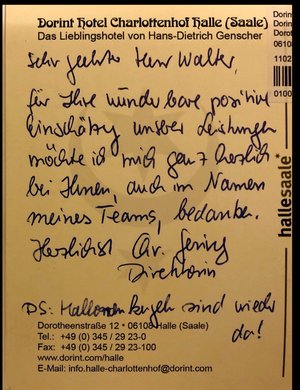 Dorint Hotel Charlottenhof Halle (Saale)
Das Lieblingshotel von Hans-Dietrich Genscher
Sehr geehrter Herr Walter,
für Ihre wunderbare positive
Einschätzung unserer Leistungen
möchte ich mich ganz herzlich
bei Ihnen, auch im Namen
meines Teams, bedanken.
Herzlichst
Direktorin
PS: Halloren Kugeln sind wieder
da!
Dorotheenstraße 12 • 06108 Halle (Saale)
Tel.: +49 (0) 345 / 29 23-0
Fax: +49 (0) 345 / 29 23-100
www.dorint.com/halle
E-Mail: info.halle-charlottenhof@dorint.com
hallesaale*
Dorin
Dorin
Dorot
06108
1102
0100